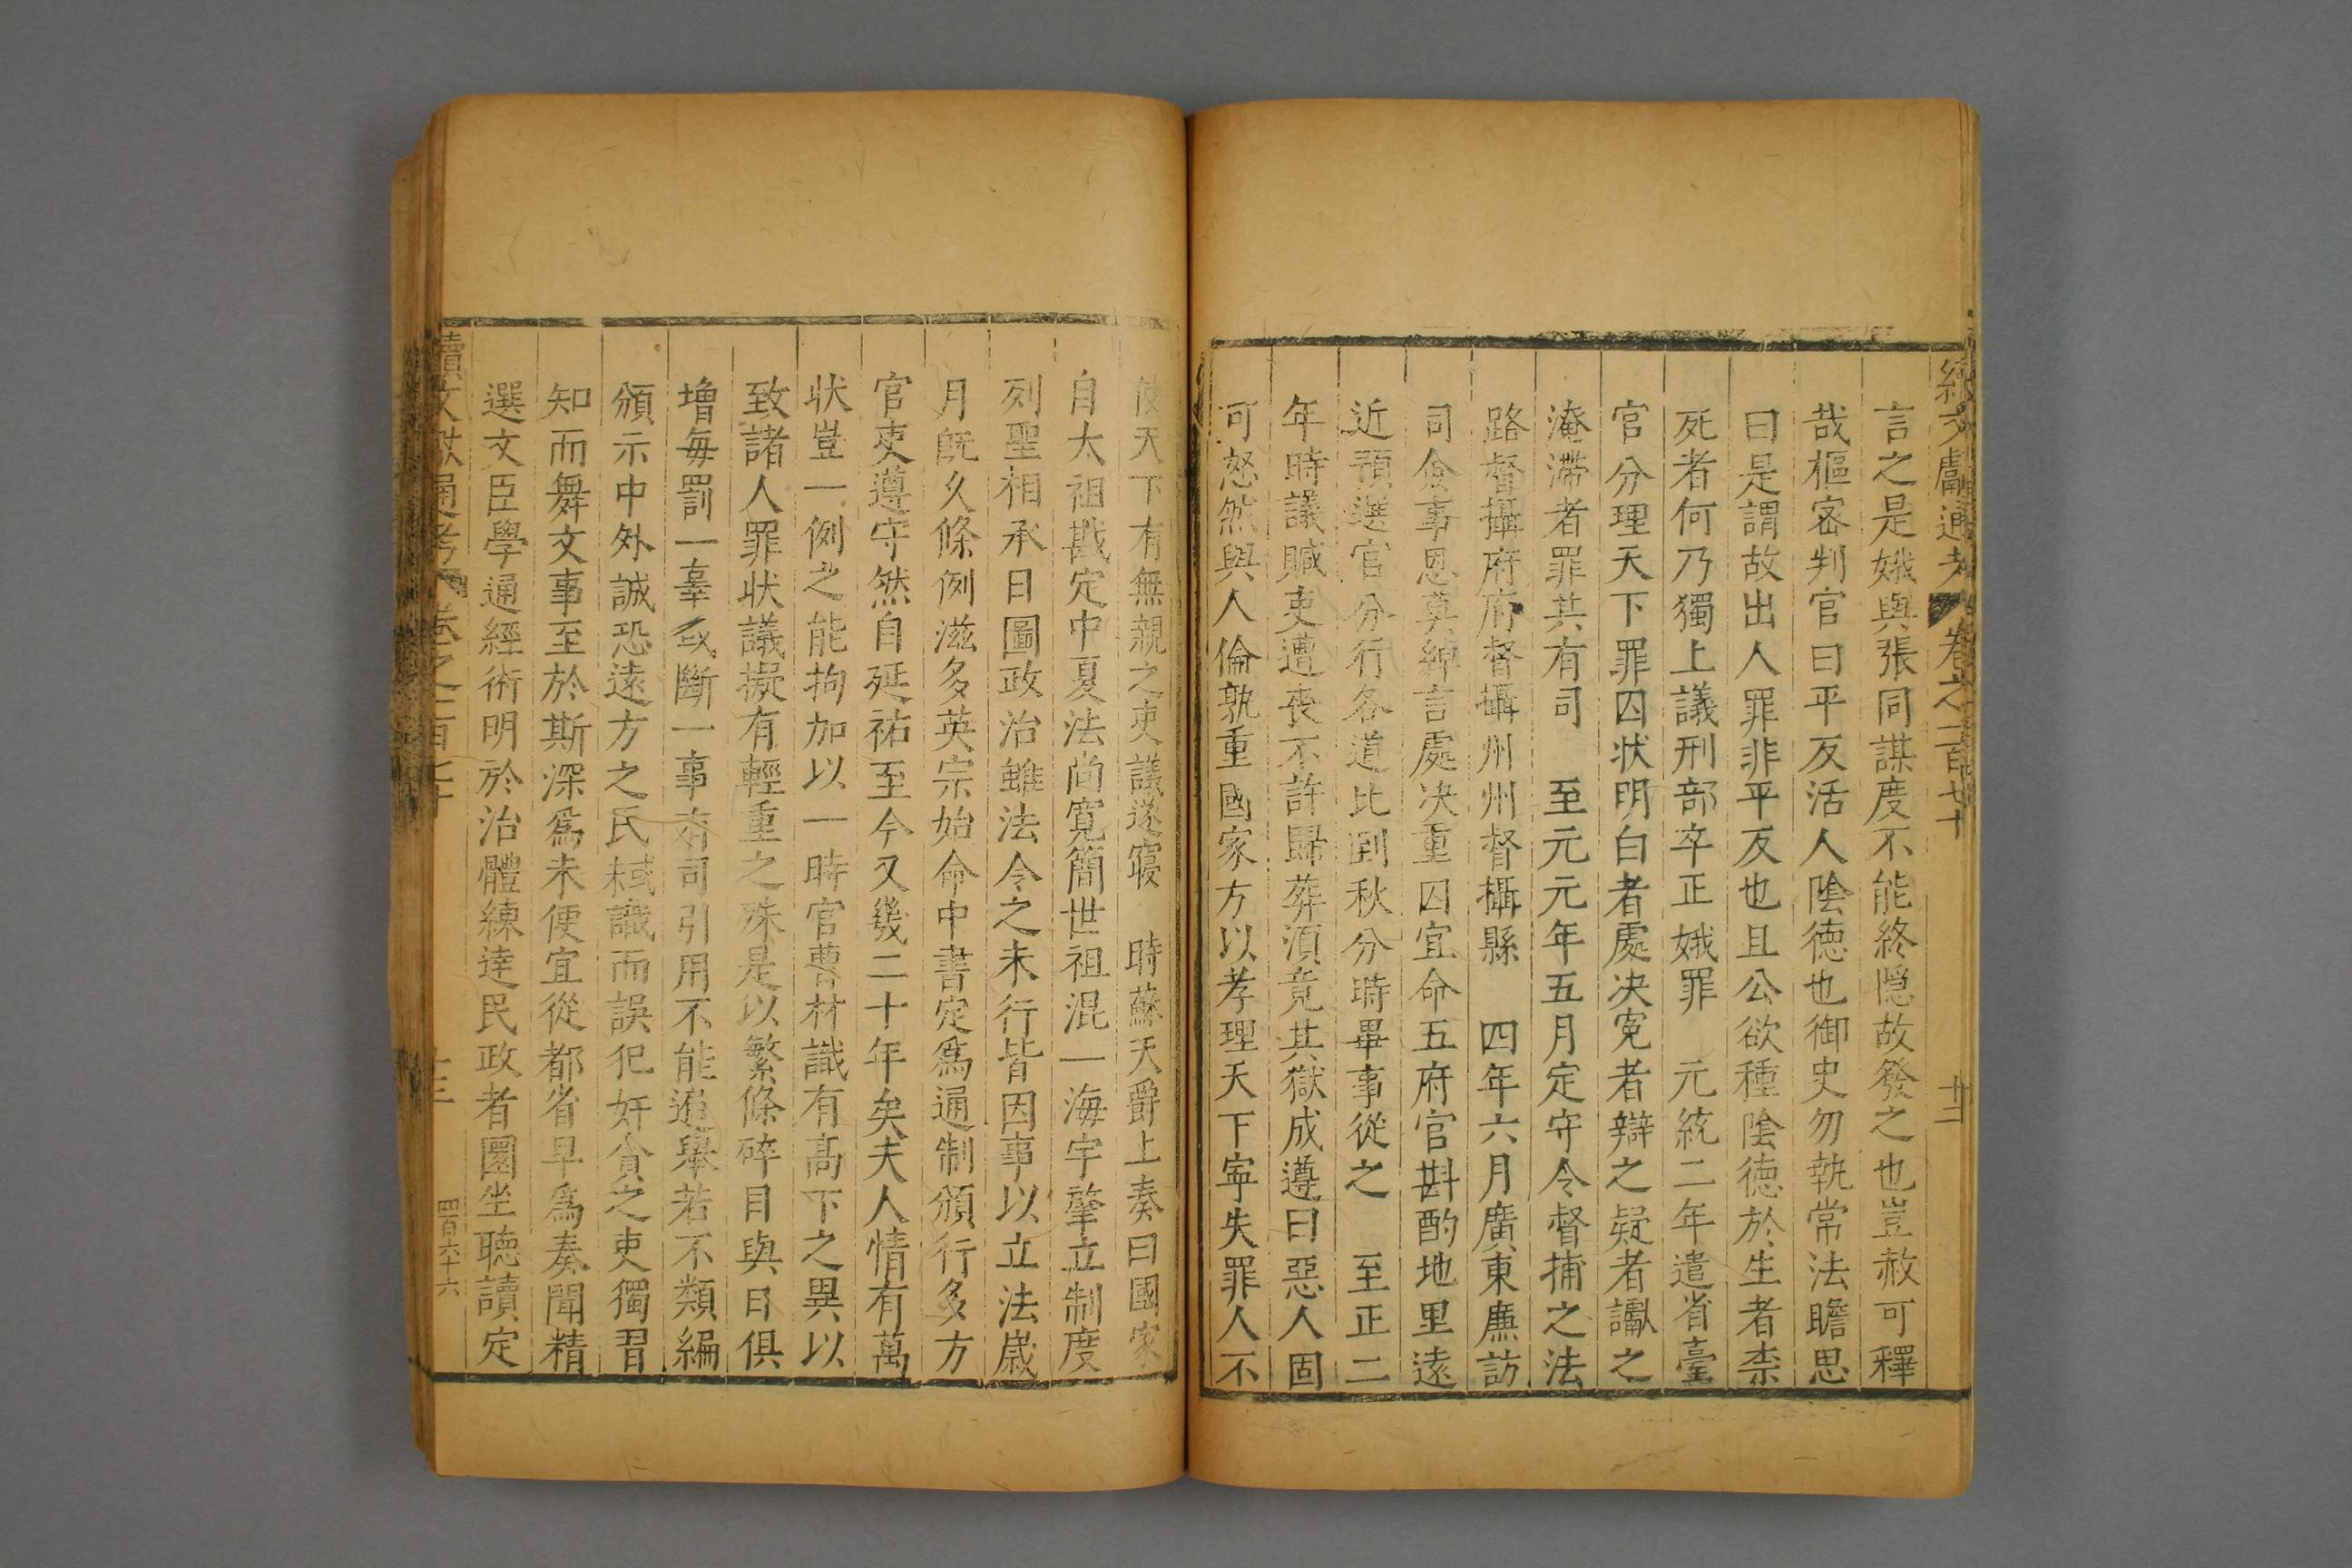 續文獻通考 卷之一百七十 十二
言之是娥與張同謀度不能終隠故發之也豈赦可釋
哉樞密判官曰平反活人陰徳也御史勿執常法瞻思
曰是謂故出人罪非平反也且公欲種陰徳於生者柰
死者何乃獨上議刑部卒正娥罪　元統二年遣省臺
官分理天下罪囚状明白者處决寃者辯之疑者讞之
淹滯者罪其有司　至元元年五月定守令督捕之法
路督攝府府督攝州州督攝縣　四年六月廣東廉訪
司僉事恩莫綽言處决重囚宜命五府官斟酌地里遠
近預選官分行各道比到秋分時畢事從之　至正二
年時議贓吏遭喪不許歸葬須竟其獄成遵曰惡人固
可怒然與人倫孰重國家方以孝理天下寕失罪人不
使天下有無親之吏議遂寢　時蘇天爵上奏曰國家
自太祖戡定中夏法尚寛簡世祖混一海宇肇立制度
列聖相承日圖政治雖法令之未行皆因事以立法歳
月旣久條例滋多英宗始命中書定爲通制頒行多方
官吏遵守然自延祐至今又幾二十年矣夫人情有萬
状豈一例之能拘加以一時官曹材識有高下之異以
致諸人罪状議擬有輕重之殊是以繁條碎目與日俱
増每罰一辜或斷一事有司引用不能遍舉若不類編
頒示中外誠恐遠方之民𥿄識而誤犯奸貪之吏獨習
知而舞文事至於斯深爲未便宜從都省早爲奏聞精
選文臣學通經術明於治體練逹民政者圜坐聴讀定
續文獻通考 卷之一百七十 十三 四百六十六